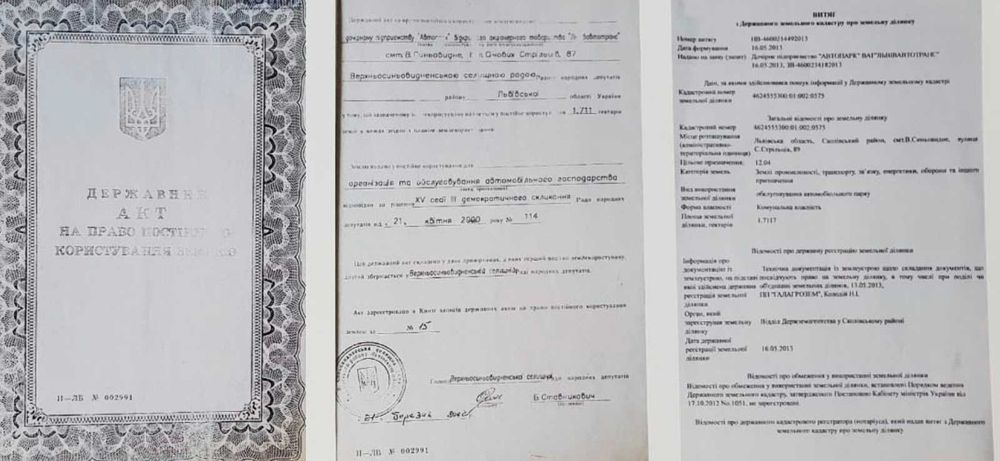 ДЕРЖАВНИЙ
АКТ
НА ПРАВО ПОСТІЙНОГО
КОРИСТУВАННЯ ЗЕМЛЕЮ
II-ЛБ № 002991
смт.В.Синьовидне, Січових Стрільців, 87
Верхньосиньовидненською селищною радою Рада народних депутатів
району Львівської області України
1,711 гектарів
землі в межах згідно з планом землекористування
Землю надано у постійне користування для
організація та обслуговування автомобільного господарства
відповідно до рішення XV сесії III демократичного скликання Ради народних
депутатів від „ 21„ квітня 2000 року № 114
Цей державний акт складено у двох примірниках, з яких перший видано землекористувачу,
другий зберігається Верхньосиньовидненській селищній раді народних депутатів.
Акт зареєстровано в Книзі записів державних актів на право постійного користування
землею за № 15
Голова Верхньосиньовидненської селищної ради народних депутатів
Б Ставникович
II-ЛБ № 002991
ВИТЯГ
з Державного земельного кадастру про земельну ділянку
Номер витягу НВ-4600234492013
Дата формування 16.05.2013
Надано на заяву (запит) Дочірнє підприємство "АВТОПАРК" ВАТ"ЛЬВІВАВТОТРАНС"
16.05.2013, ЗВ-4600234182013
Дані, за якими здійснювався пошук інформації у Державному земельному кадастрі
Кадастровий номер
земельної ділянки 4624555300:01:002:0575
Загальні відомості про земельну ділянку
Кадастровий номер 4624555300:01:002:0575
Місце розташування
(адміністративно-
територіальна одиниця) Львівська область, Сколівський район, смт.В.Синьовидне, вулиця
С.Стрільців, 89
Цільове призначення: 12.04
Категорія земель Землі промисловості, транспорту, зв'язку, енергетики, оборони та іншого
призначення
Вид використання
земельної ділянки обслуговування автомобільного парку
Форма власності Комунальна власність
Площа земельної
ділянки, гектарів 1.7117
Відомості про державну реєстрацію земельної ділянки
Інформація про
документацію із
землеустрою, на підставі
якої здійснена державна
реєстрація земельної
ділянки
Технічна документація із землеустрою щодо складання документів, що
посвідчують право на земельну ділянку, в тому числі при поділі чи
об'єднанні земельних ділянок, 13.05.2013,
ПП "ГАЛАГРОЗЕМ", Ководій Н.І.
Орган, який
зареєстрував земельну
ділянку Відділ Держземагентства у Сколівському районі
Дата державної
реєстрації земельної
ділянки 16.05.2013
Відомості про обмеження у використанні земельної ділянки
Відомості про обмеження у використанні земельної ділянки, встановлені Порядком ведення
Державного земельного кадастру, затвердженого Постановою Кабінету міністрів України від
17.10.2012 No.1051, не зареєстровані.
Відомості про державного кадастрового реєстратора (нотаріуса), який надав витяг з Державного
земельного кадастру про земельну ділянку